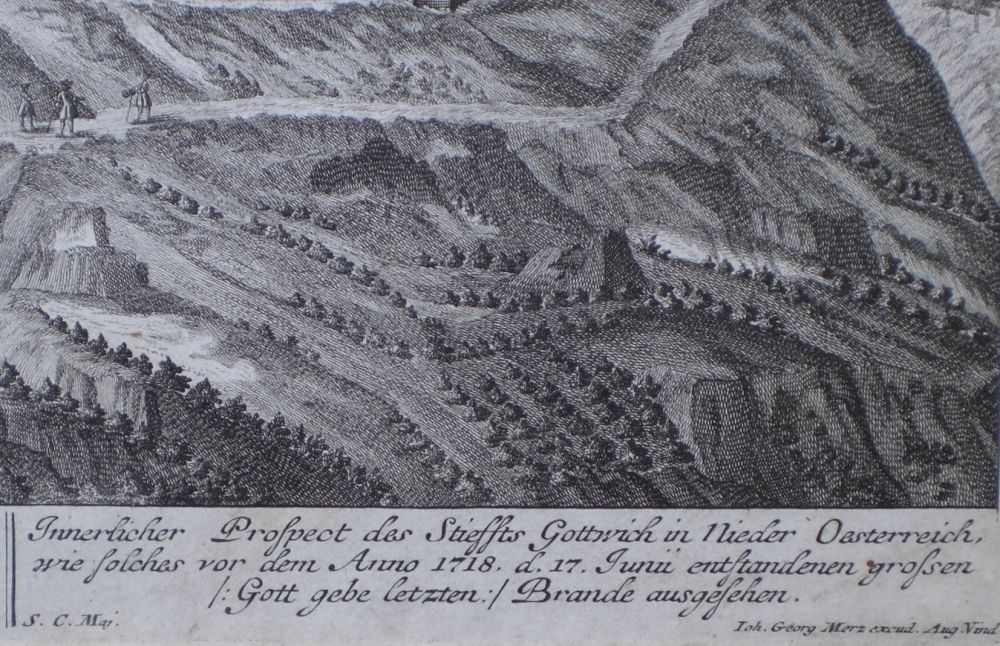 Innerlicher Prospect des Stieffts Gottwich in Nieder Oesterreich,
wie solches vor dem Anno 1718. d. 17. Junii entstandenen grossen
/: Gott gebe letzten :/ Brande ausgesehen.
S. C. Maj.
Joh. Georg Merz excud. Aug. Vind